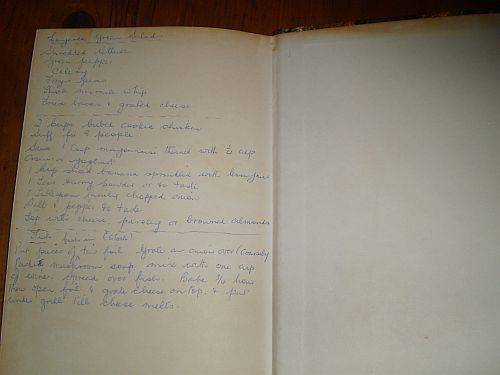 Green Salad.
Shredded lettuce
Green pepper
Celery
Frozen Peas
Thick miracle whip
Fried bacon & grated cheese
2 cups cubed cooked chicken
Suff for 8 people
Sauce 1 cup mayonnaise thinned with 1/4 cup
Cream or yoghurt
1 cup sliced banana sprinkled with lemon juice
1 Teas curry powder or to taste
1 Tablespoon finely chopped onion
Salt & pepper to taste
Top with cheese parsley or browned almonds
Put pieces of tin foil. Grate an onion over
Packet mushroom soup, mix with one cup
of water. Spread over fish. Bake 3/4 hour
then open foil & grate cheese on top, & put
under grill till cheese melts.